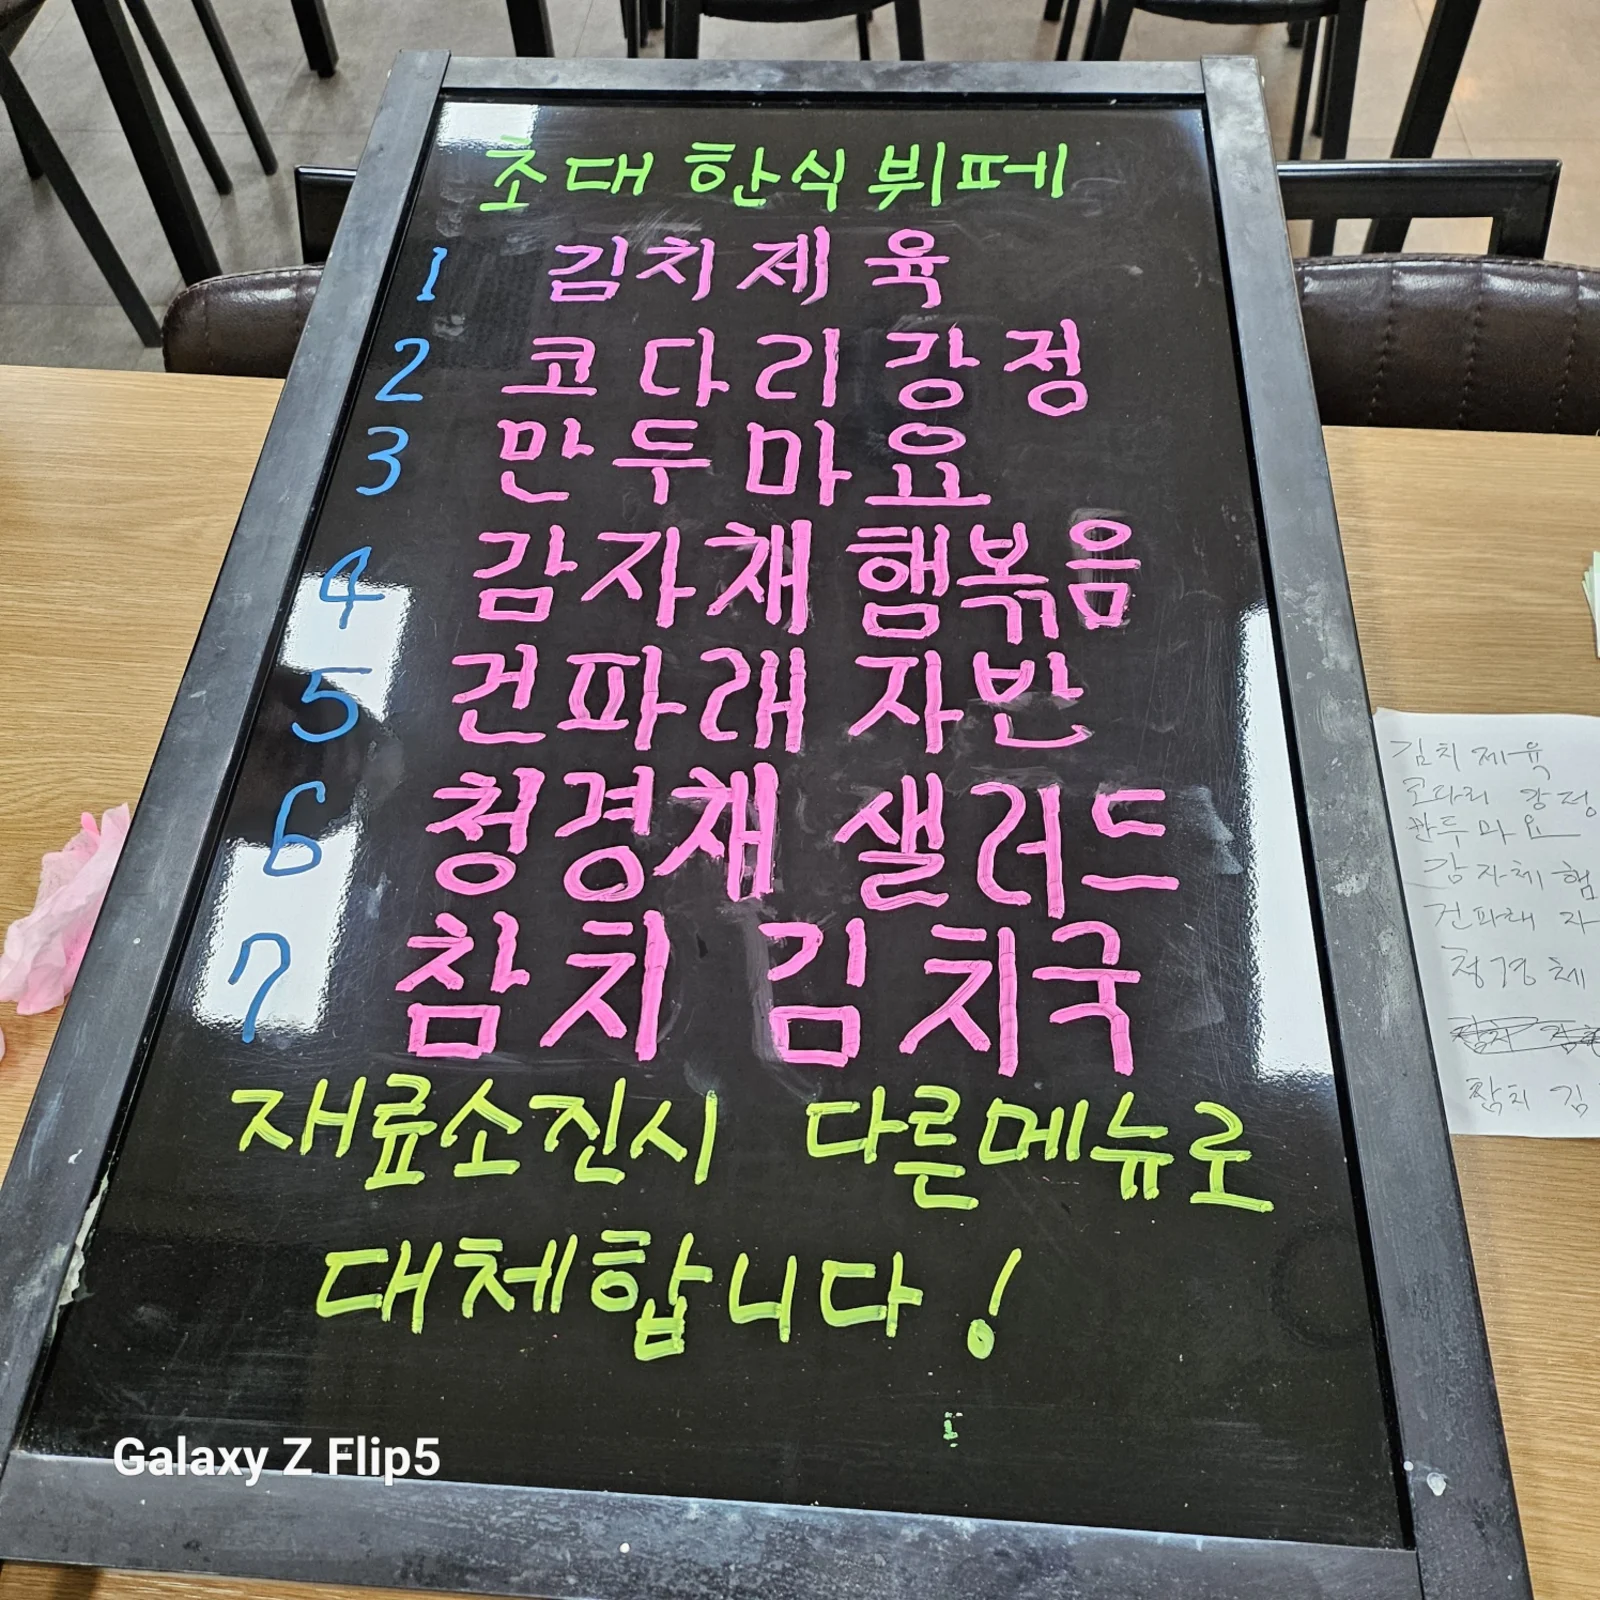 초대 한식 뷔페
1 김치제육
2 코다리강정
3 만두마요
4 감자채 햄볶음
5 건파래 자반
6 청경채 샐러드
7 참치 김치국
재료소진시 다른메뉴로
대체합니다!
김치제육
코다리 강정
만두마요
감자체 햄
건파래 자
청경체
참치 김
Galaxy Z Flip5